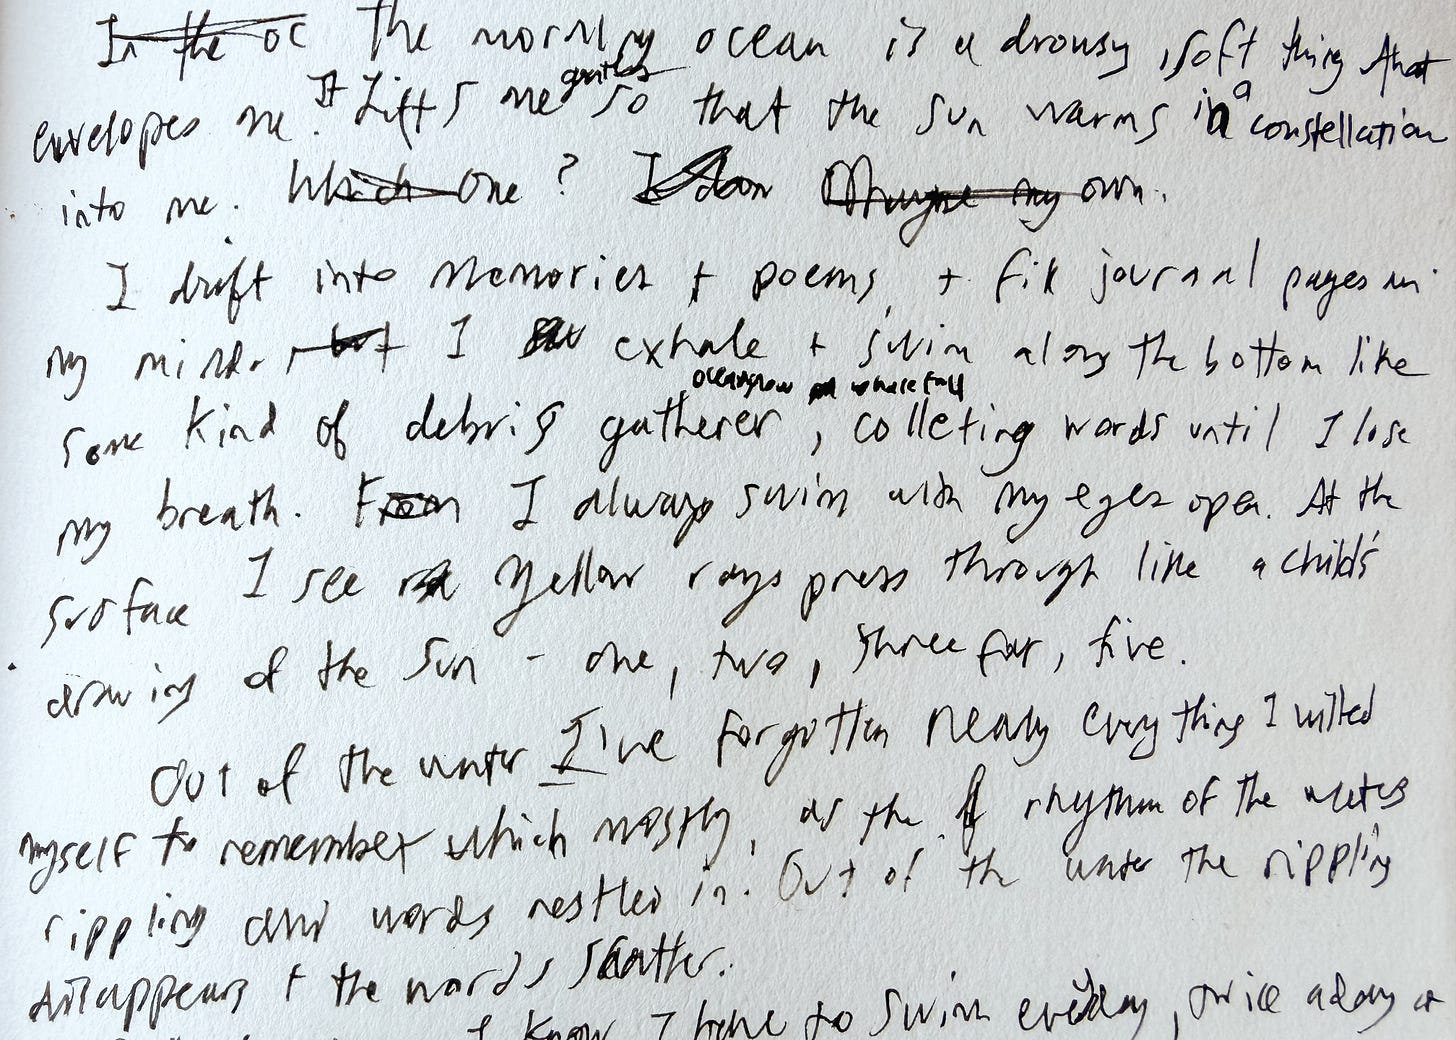 In the oc The morning ocean is a drowsy, soft thing that
envelopes me. It Lifts me gently so that the sun warms in a constellation
into me. Which One? I own.
I drift into memories + poems, + fill journal pages in
my mind. but I exhale + swim along the bottom like
oceanfloor whale fall
some kind of debris gatherer, colleting words until I lose
my breath. From I always swim with my eyes open. At the
surface I see yellow rays press through like a child's
drawing of the sun - one, two, three four, five.
Out of the water I've forgotten nearly everything I willed
myself to remember which mostly, as the rhythm of the
rippling and words nestled in. Out of the water the rippling
disappears + the words scatter.
I know I have to swim everyday, twice a day